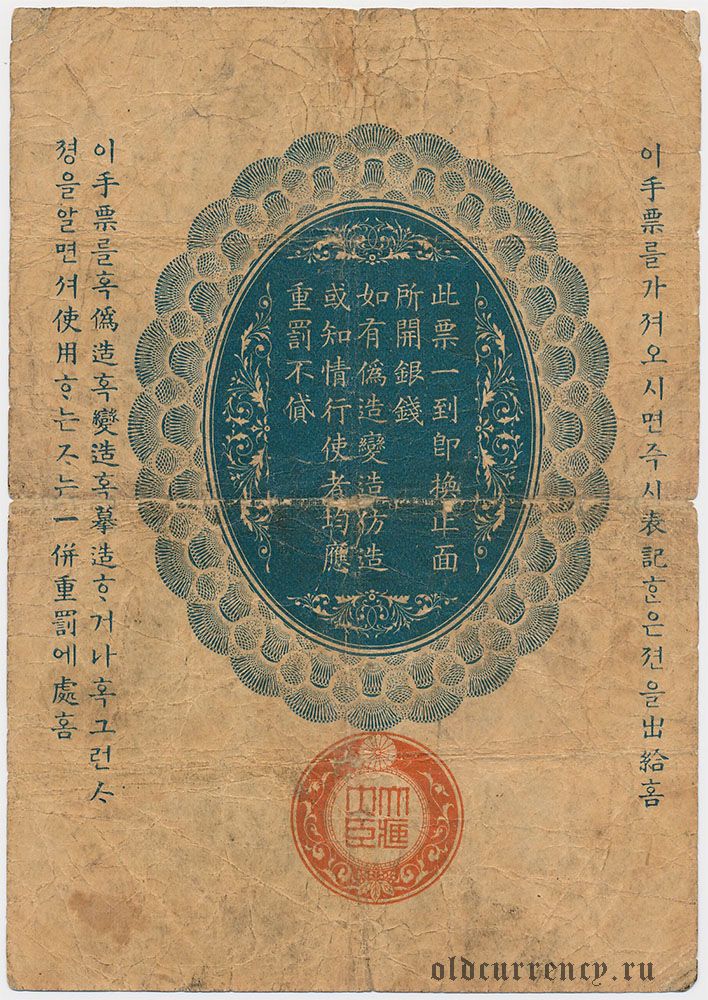 이手票를가져오시면주시表記ᄒᆞᆫ은젼을出給홈
此票一到卽換正面
所開銀錢
如有僞造變造仿造
或知情行使者均應
重罰不貸
이手票를혹僞造혹變造혹摹造ᄒᆞ거나혹그런ᄉᆞ
졍을알면셔使用ᄒᆞ는ᄌᆞ는一併重罰에處홈
大藏
大臣
oldcurrency.ru